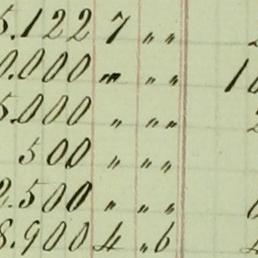 5.122 7 " "
0.000 " " " 10
5.000 " " "
500 " " "
2.500 " " "
8.900 4 " 6